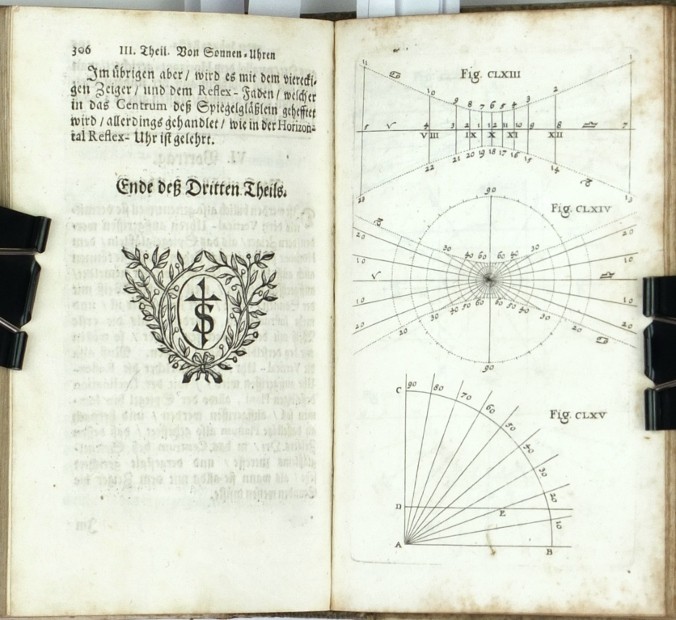 306 III. Theil. Von Sonnen-Uhren
Im übrigen aber / wird es mit dem viereckigen
gen Zeiger / und dem Reflex-Faden / welcher
in das Centrum deß Spiegelgläßleins gehefftet
wird / allerdings gehandlet / wie in der Horizon-
tal Reflex-Uhr ist gelehrt.
Ende deß Dritten Theils.
Fig. CLXIII
10 9 8 7 6 5 4 3 2
VIII IX X XI XII
22 21 20 19 18 17 16 15 14
Fig. CLXIV
90
30 40 50 60 60 50 40 30
20 20
10 10
10 10
20 30 40 50 60 60 50 40 30 20
90
Fig. CLXV
C 90 80 70 60 50 40 30 20 10
D E
A B